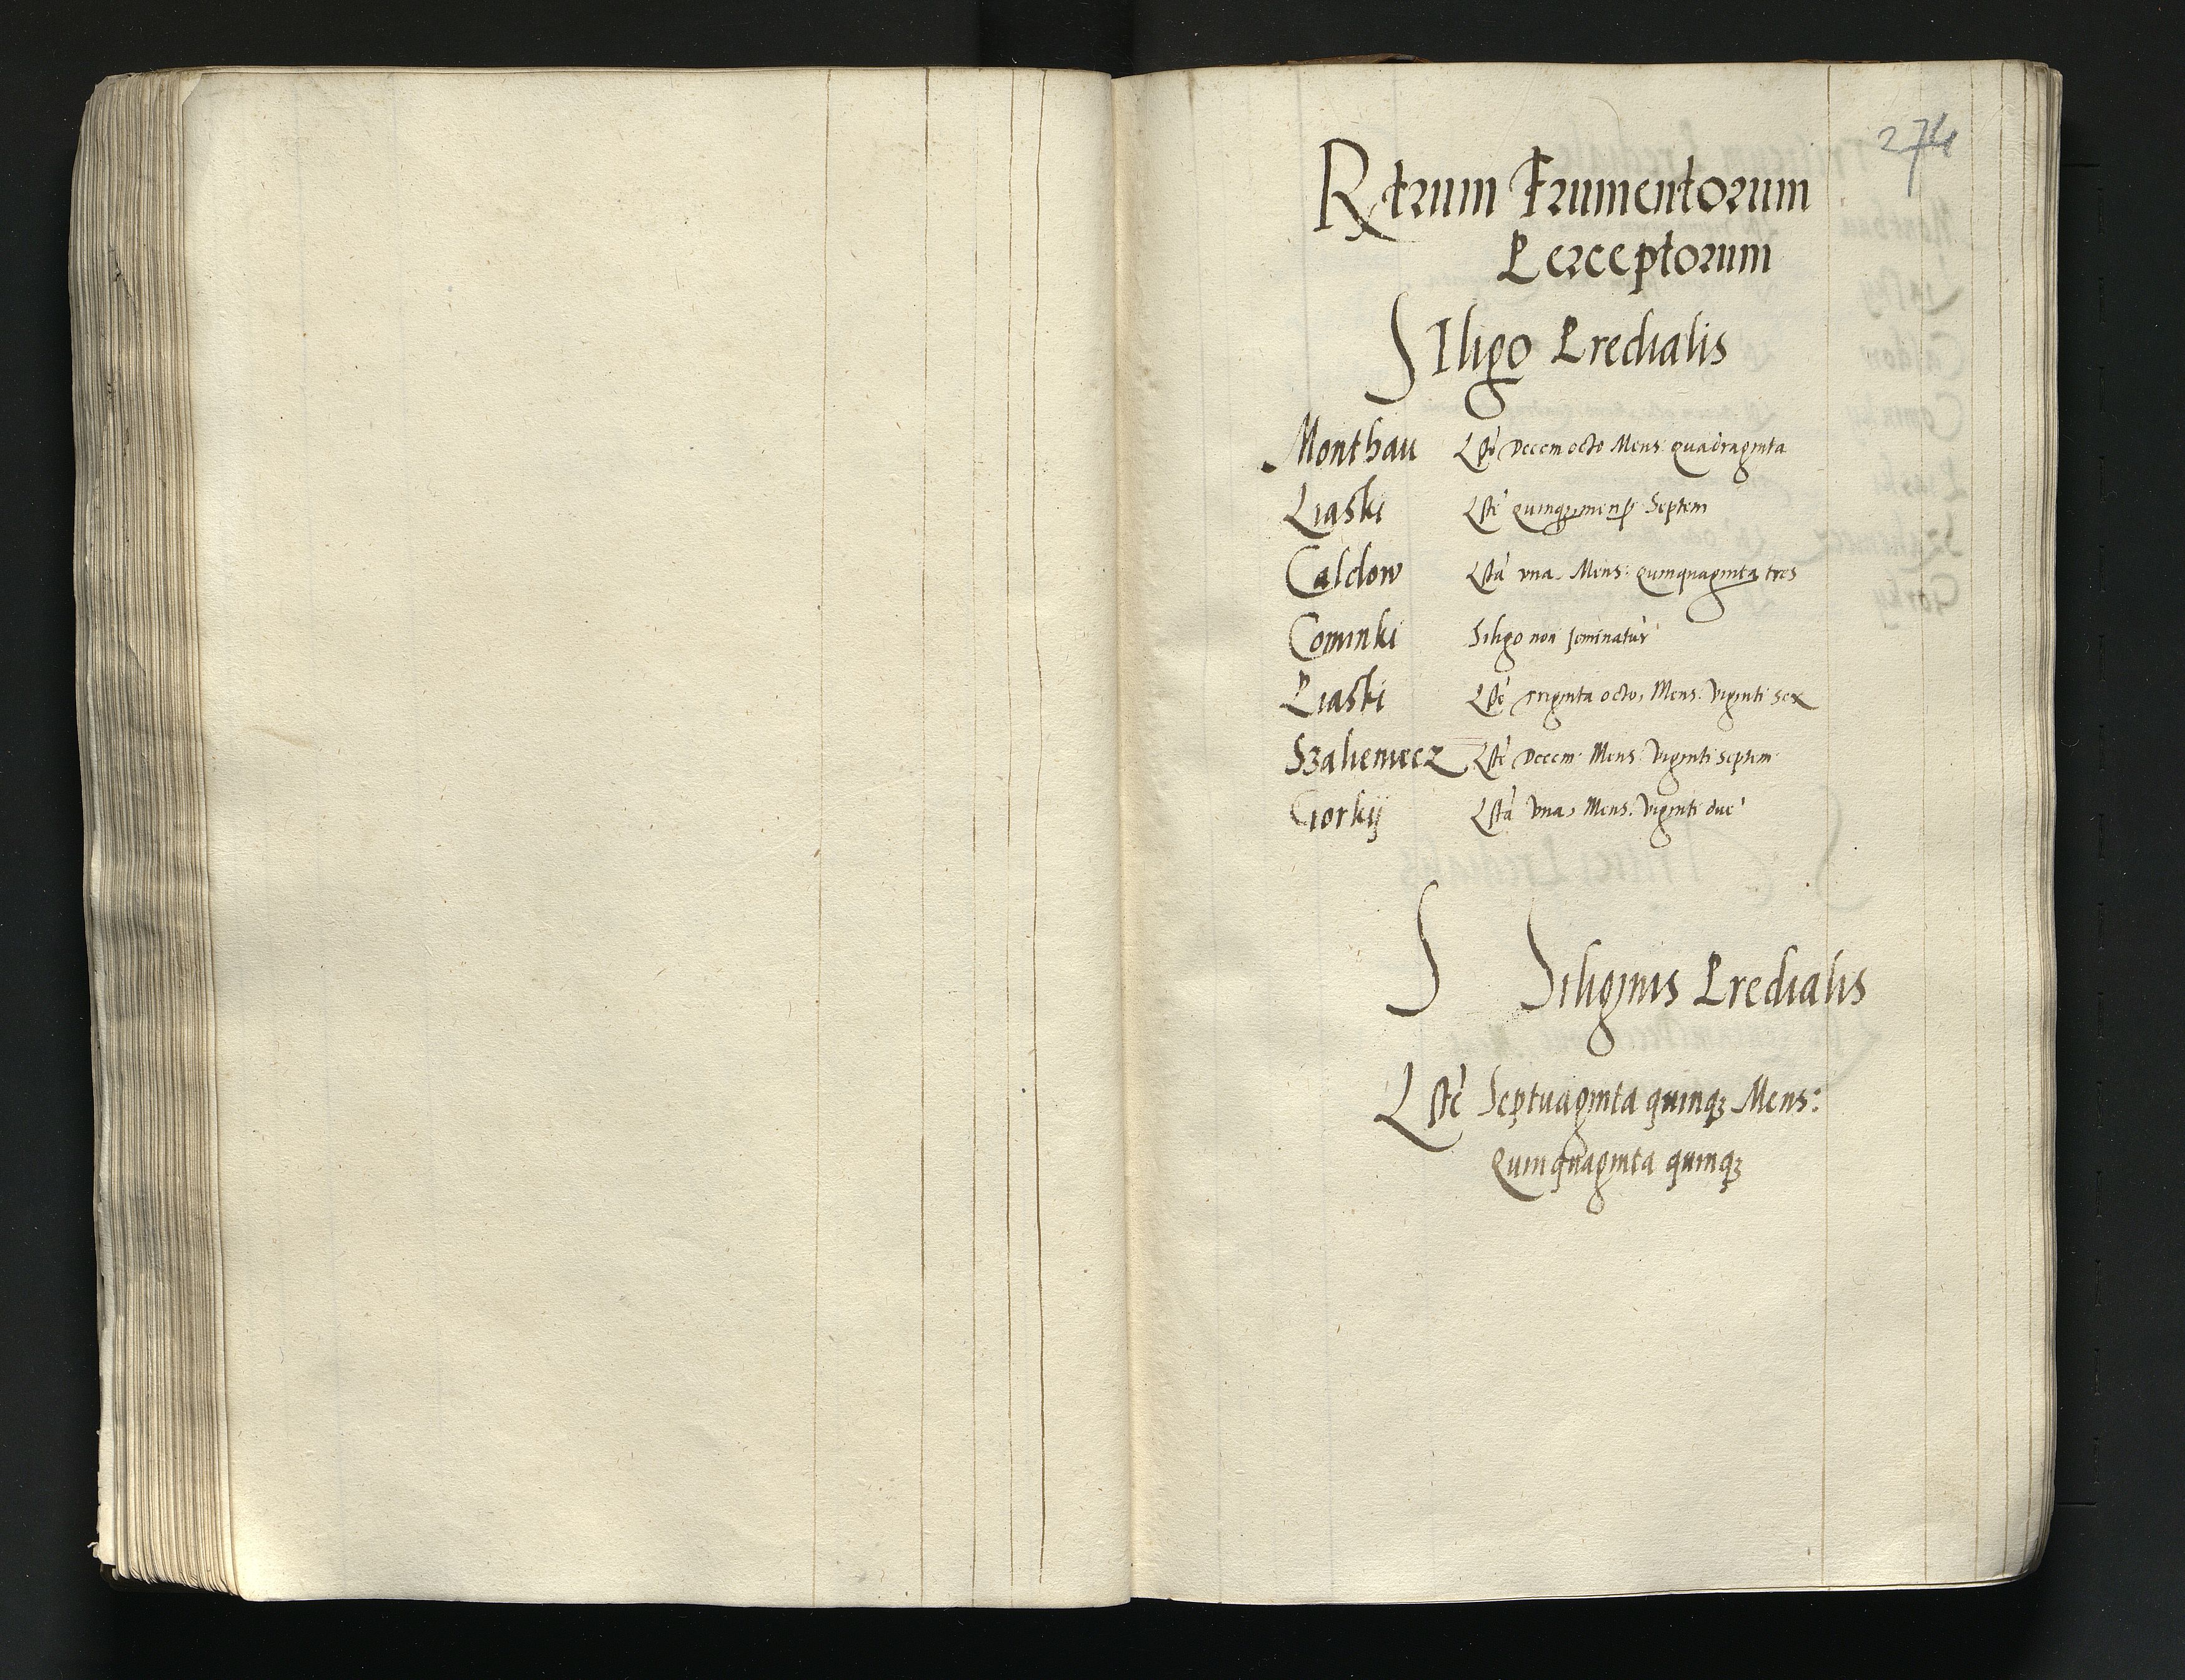 274
Rtrum Frumentorum
Perceptorum
SIligo Predialis
Monthau Lste Decem octo Mens: quadraginta
Liaski Lste quinqz mens Septem
Caldow Lsta vna Mens: quinquaginta tres
Cominki Siligo non seminatur
Piaski Lste Triginta octo, Mens. Viginti sex
Szaliemecz Lste Decem Mens Viginti septem
Gorkij Lsta Vna, Mens. Viginti due
S Siliginis Predialis
Lste Septuaginta quinqz Mens:
Quinquaginta quinqz